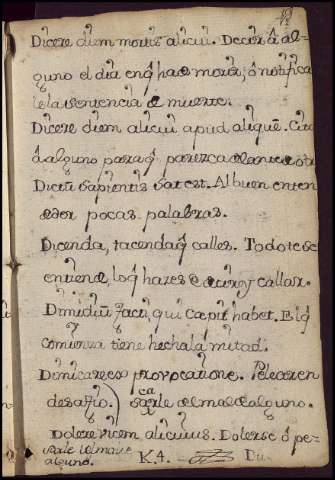 Dicere diem mortis alicui. Decir â al-
guno el dia enq̃ ha de morir; ô notificar
le la sentencia de muerte.
Dicere diem alicui apud aliquē. Citar
â alguno paraq̃ parezca delante otro
Dictū sapientis sat est. Al buen enten
dedor pocas palabras.
Dicenda, tacendaq̃ calles. Todo te se
entiende, loq̃ hazes de decir, y callar.
Dimidiū facti, qui cœpit habet. El q̃
comienza tiene hecha lâ mitad.
Dimicare ex provocatione. Pelear en
desafio.
Dolere vicem alicuius. Dolerse ô pe-
sarle del mal de
alguno.
K.4. Du.